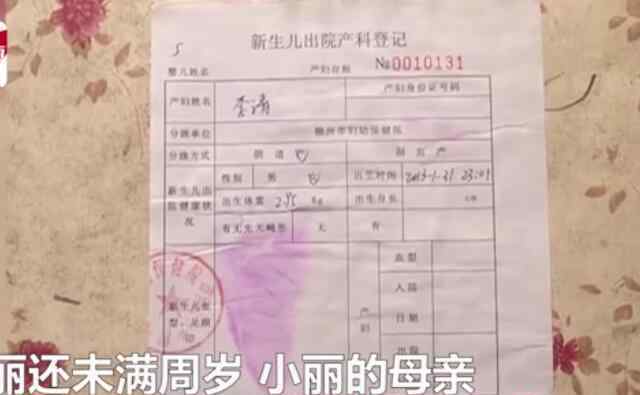 新生儿出院产科登记
婴儿姓名 产妇存根 №0010131
产妇姓名 李清 产妇身份证号码
分娩单位 柳州市妇幼保健院
分娩方式 阴道 剖宫产
新生儿出院健康状况 性别 男 女 出生时间 2013-1-31
出生体重 2.85 Kg 出生身长 cm
有无先天畸形 无 有
血型
产妇 入院日期
出院
丽还未满周岁 小丽的母亲